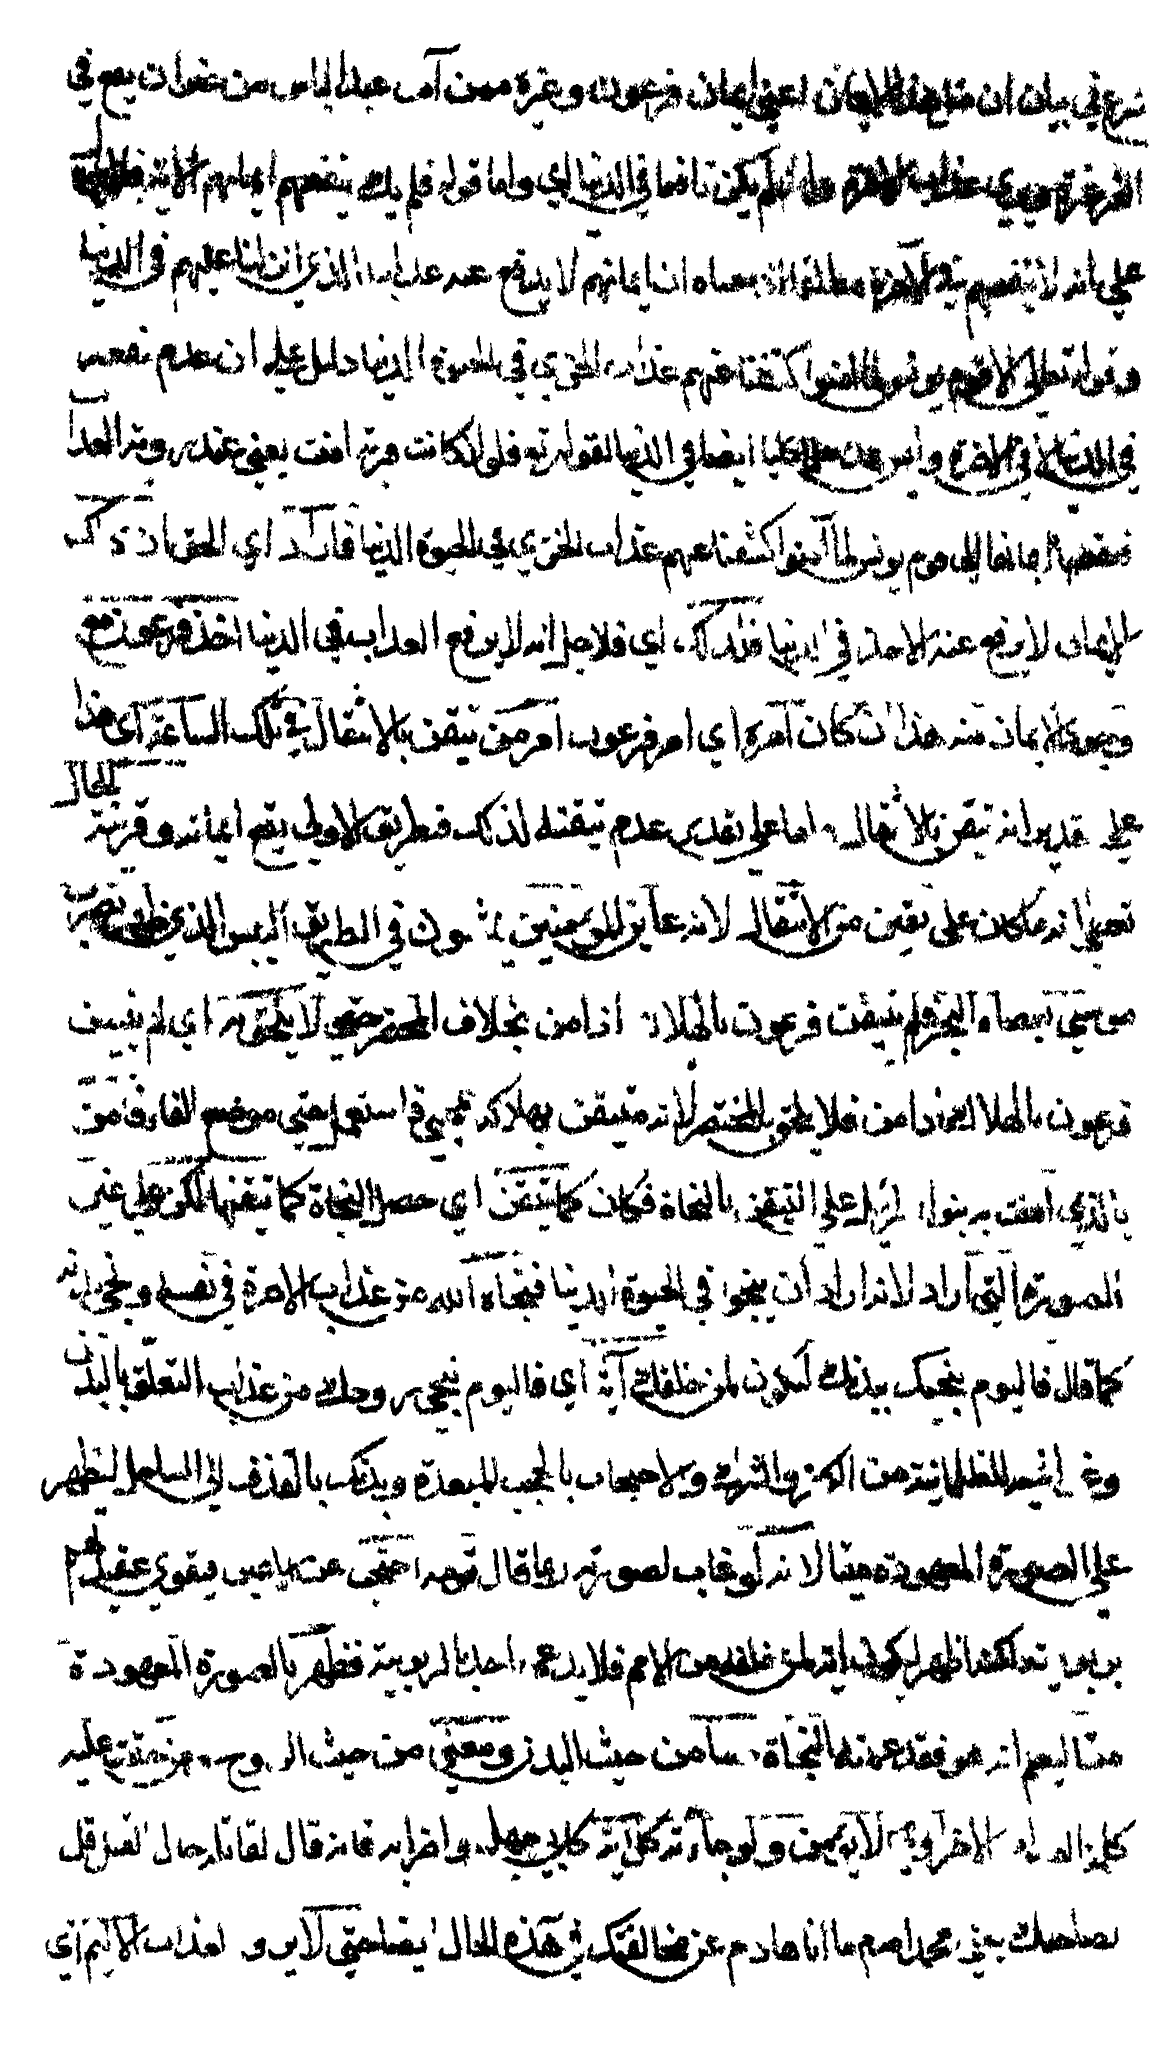 شرع في بيان ان مثل هذا الايمان اعني ايمان فرعون وغيره ممن آمن عند الياس من غير ان يقع في
الغرغرة منجي عذاب الآخرة وان لم يكن نافعا في الدنيا اي واما قوله فلم يك ينفعهم ايمانهم الآية
على انه لا ينفعهم في الآخرة مطلقا اذ معناه ان ايمانهم لا يدفع عنهم عذابنا الذي انزلنا عليهم في الدنيا
وقوله تعالى الا قوم يونس لما آمنوا كشفنا عنهم عذاب الخزي في الحيوة الدنيا دليل على ان عدم نفعه
في الدنيا لا في الآخرة وليس هذا كليا ايضا في الدنيا لقوله تع فلولا كانت قرية آمنت يعني عند رؤية العذاب
فنفعها ايمانها الا قوم يونس لما آمنوا كشفنا عنهم عذاب الخزي في الحيوة الدنيا فاراد اي الحق ان ذلك
الايمان لا يرفع عنهم الاخذ في الدنيا فلذلك اي فلاجل انه لا يرفع العذاب في الدنيا اخذ فرعون مع
وجود الايمان منه هذا ان كان امره اي امر فرعون امر من تيقن بالانتقال في تلك الساعة اي هذا
على تقدير انه تيقن بالانتقال واما على تقدير عدم تيقنه لذلك فطريق الاولى يقع ايمانه وقرينة الحال
تعطي انه ما كان على يقين من الانتقال لانه عاين المؤمنين يمشون في الطريق اليبس الذي ظهر بضرب
موسى بعصاه البحر فلم يتيقن فرعون بالهلاك اذا آمن بخلاف المحتضر حتى لا يلحق به اي لم يتيقن
فرعون بالهلاك اذا آمن فلا يلحق بالمحتضر لانه متيقن بهلاكه فحتى استعمل حتى موضع الفاء فآمن
بالذي آمنت به بنوا اسرائيل على التيقن بالنجاة فكان كما تيقن اي حصل النجاة كما تيقنها لكن على غير
الصورة التي اراد لانه اراد ان ينجوا في الحيوة الدنيا فنجاه الله من عذاب الآخرة في نفسه ونجى بدنه
كما قال فاليوم ننجيك ببدنك لتكون لمن خلفك آية اي فاليوم ننجي روحك من عذاب التعلق بالبدن
وغواشيه الظلمانية من الكفر والشرك والاحتجاب بالحجب المبعدة وبدنك بالقذف الى الساحل ليظهر
على الصورة المعهودة ميتا لانه لو غاب لصورته ربما قال قومه احتجب عن الاعين فيقوى عقيدتهم
بربوبيته لكنه اظهر ليكون آية لمن خلفه من الامم فلا يدعي احد بالربوبية فظهر بالصورة المعهودة
ميتا ليعلم انه هو فقد عمته النجاة حسا من حيث البدن ومعنى من حيث الروح ومن حقت عليه
كلمة العذاب الاخراوي لا يؤمن ولو جاءته كل آية كابي جهل واضرابه فانه قال لقاتله حال القتل قل
لصاحبك يعني محمدا صلعم ما انا بنادم عن مخالفتك في هذه الحال ايضا حتى لا يروا العذاب الاليم اي